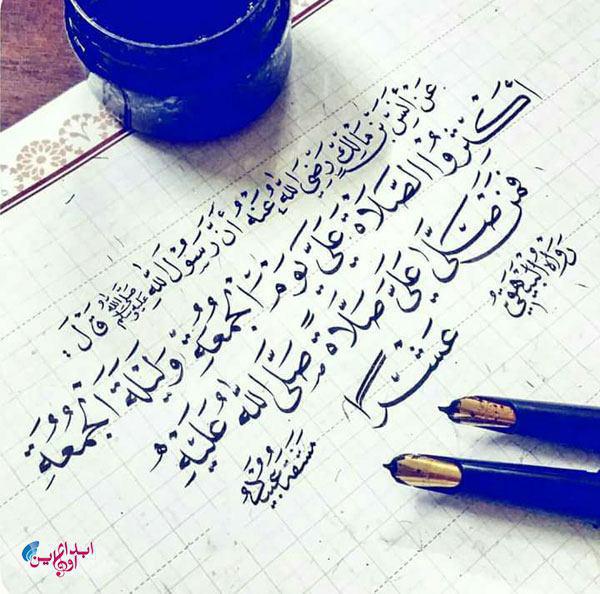 عَنْ أَنَسِ بْنِ مَالِكٍ رَضِيَ اللهُ عَنْهُ أَنَّ رَسُولَ اللهِ ﷺ قَالَ:
أَكْثِرُوا الصَّلَاةَ عَلَيَّ يَوْمَ الْجُمُعَةِ وَلَيْلَةَ الْجُمُعَةِ
فَمَنْ صَلَّى عَلَيَّ صَلَاةً صَلَّى اللهُ عَلَيْهِ
عَشْرًا
رَوَاهُ الْبَيْهَقِيُّ
ابداع
اونلاين